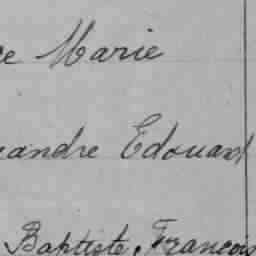 ce Marie
eandre Edouard
Baptiste, François